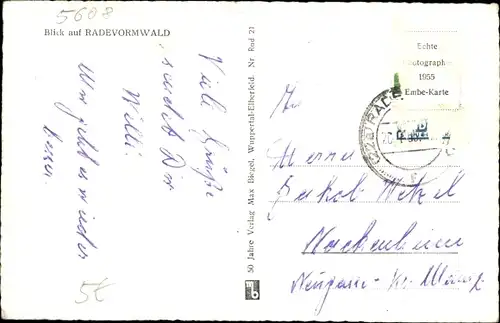 5608
Blick auf RADEVORMWALD
Viele Grüße
sendet Dir
Willi.
Mir geht es wieder
besser.
5€
50 Jahre Verlag Max Biegel, Wuppertal-Elberfeld. Nr Rad 21
Echte
Photographie
1955
Embe-Karte
An
Herrn
Jakob Wetzel
Nackenheim
Neugasse - Kr. Mainz